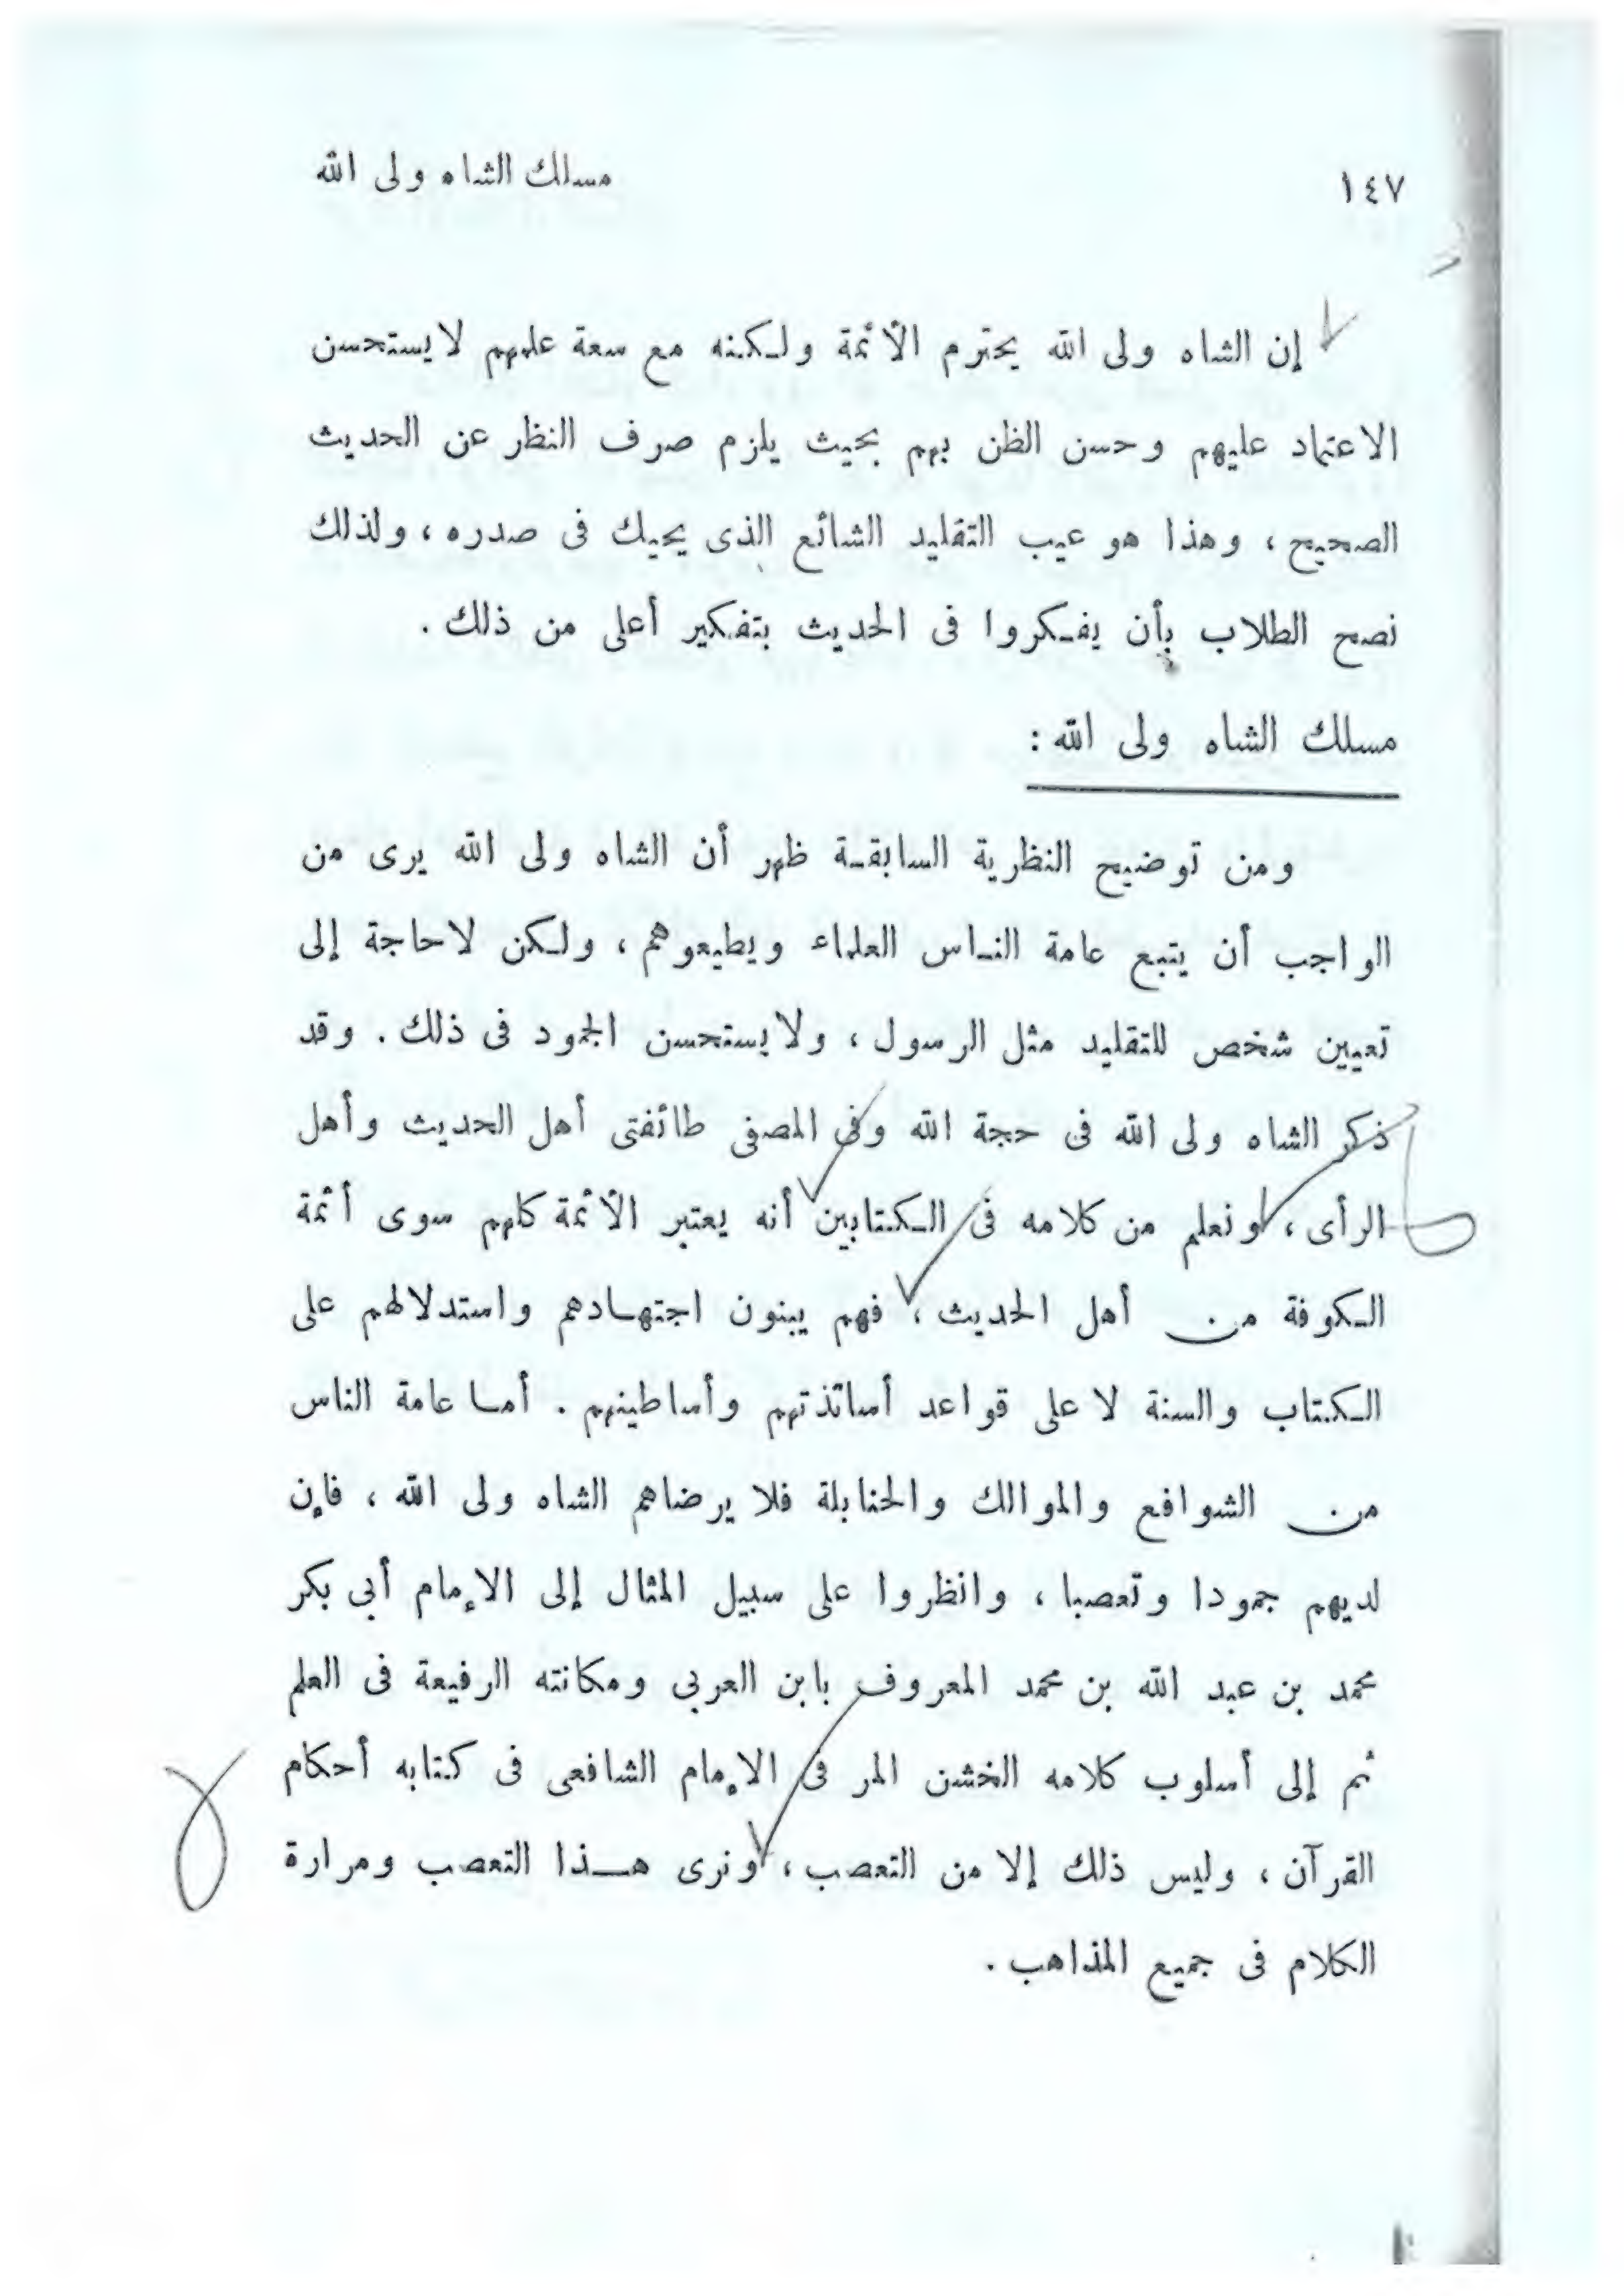 ١٤٧ مسلك الشاه ولى الله
إن الشاه ولى الله يحترم الأئمة ولكنه مع سعة علمهم لا يستحسن
الاعتماد عليهم وحسن الظن بهم بحيث يلزم صرف النظر عن الحديث
الصحيح ، وهذا هو عيب التقليد الشائع الذى يحيك فى صدره ، ولذلك
نصح الطلاب بأن يفكروا فى الحديث بتفكير أعلى من ذلك .
مسلك الشاه ولى الله :
ومن توضيح النظرية السابقة ظهر أن الشاه ولى الله يرى من
الواجب أن يتبع عامة الناس العلماء ويطيعوهم ، ولكن لا حاجة إلى
تعيين شخص للتقليد مثل الرسول ، ولا يستحسن الجمود فى ذلك . وقد
ذكر الشاه ولى الله فى حجة الله وفى المصفى طائفتى أهل الحديث وأهل
الرأى ، ونعلم من كلامه فى الكتابين أنه يعتبر الأئمة كلهم سوى أئمة
الكوفة من أهل الحديث ، فهم يبنون اجتهادهم واستدلالهم على
الكتاب والسنة لا على قواعد أساتذتهم وأساطينهم . أما عامة الناس
من الشوافع والموالك والحنابلة فلا يرضاهم الشاه ولى الله ، فإن
لديهم جمودا وتعصبا ، وانظروا على سبيل المثال إلى الإمام أبى بكر
محمد بن عبد الله بن محمد المعروف بابن العربى ومكانته الرفيعة فى العلم
ثم إلى أسلوب كلامه الخشن المر فى الإمام الشافعى فى كتابه أحكام
القرآن ، وليس ذلك إلا من التعصب ، ونرى هذا التعصب ومرارة
الكلام فى جميع المذاهب .